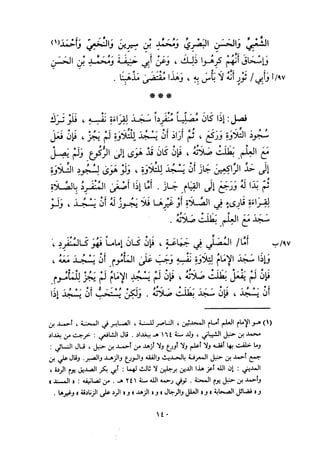 الشَّعْبِيِّ وَالْحَسَنِ الْبَصْرِيِّ وَمُحَمَّدِ بْنِ سِيرِينَ وَالنَّخَعِيِّ وَأَحْمَدَ(١)
وَإِسْحَاقَ أَنَّهُمْ كَرِهُوا ذَلِكَ ، وَعَنْ أَبِي حَنِيفَةَ وَمُحَمَّدِ بْنِ الْحَسَنِ
٩٧/أ وَأَبِي / ثَوْرٍ أَنَّهُ لَا بَأْسَ بِهِ ، وَهَذَا مُقْتَضَى مَذْهَبِنَا .
***
فصل : إِذَا كَانَ مُصَلِّياً مُنْفَرِداً سَجَدَ لِقِرَاءَةِ نَفْسِهِ ، فَلَوْ تَرَكَ
سُجُودَ التِّلَاوَةِ وَرَكَعَ ، ثُمَّ أَرَادَ أَنْ يَسْجُدَ لِلتِّلَاوَةِ لَمْ يَجُزْ ، فَإِنْ فَعَلَ
مَعَ الْعِلْمِ بَطَلَتْ صَلَاتُهُ ، فَإِنْ كَانَ قَدْ هَوَى إِلَى الرُّكُوعِ وَلَمْ يَصِلْ
إِلَى حَدِّ الرَّاكِعِينَ جَازَ أَنْ يَسْجُدَ لِلتِّلَاوَةِ ، وَلَوْ هَوَى لِسُجُودِ التِّلَاوَةِ
ثُمَّ بَدَا لَهُ وَرَجَعَ إِلَى الْقِيَامِ جَازَ . أَمَّا إِذَا أَصْغَى الْمُنْفَرِدُ بِالصَّلَاةِ
لِقِرَاءَةِ قَارِىءٍ فِي الصَّلَاةِ أَوْ غَيْرِهَا فَلَا يَجُوزُ لَهُ أَنْ يَسْجُدَ ، وَلَوْ
سَجَدَ مَعَ الْعِلْمِ بَطَلَتْ صَلَاتُهُ .
٩٧/ب أَمَّا / الْمُصَلِّي فِي جَمَاعَةٍ ، فَإِنْ كَانَ إِمَاماً فَهُوَ كَالْمُنْفَرِدِ ،
وَإِذَا سَجَدَ الْإِمَامُ لِتِلَاوَةِ نَفْسِهِ وَجَبَ عَلَى الْمَأْمُومِ أَنْ يَسْجُدَ مَعَهُ ،
فَإِنْ لَمْ يَفْعَلْ بَطَلَتْ صَلَاتُهُ ، فَإِنْ لَمْ يَسْجُدِ الْإِمَامُ لَمْ يَجُزْ لِلْمَأْمُومِ
أَنْ يَسْجُدَ ، فَإِنْ سَجَدَ بَطَلَتْ صَلَاتُهُ . وَلَكِنْ يُسْتَحَبُّ أَنْ يَسْجُدَ إِذَا
(١) هو الإمام العلم أمام المحدثين ، الناصر للسنة ، الصابر في المحنة ، أحمد بن
محمد بن حنبل الشيباني ، ولد سنة ١٦٤ هـ ببغداد . قال الشافعي : خرجت من بغداد
وما خلفت بها أفقه ولا أعلم ولا أورع ولا أزهد من أحمد بن حنبل ، قال النسائي :
جمع أحمد بن حنبل المعرفة بالحديث والفقه والورع والزهد والصبر . وقال علي بن
المديني : إن الله أعز هذا الدين برجلين لا ثالث لهما : أبي بكر الصديق يوم الردة ،
وأحمد بن حنبل يوم المحنة . توفي رحمه الله سنة ٢٤١ هـ . من تصانيفه : « المسند »
و « فضائل الصحابة » و « العلل والرجال » و « الزهد » و « الرد على الزنادقة » وغيرها .
١٤٠